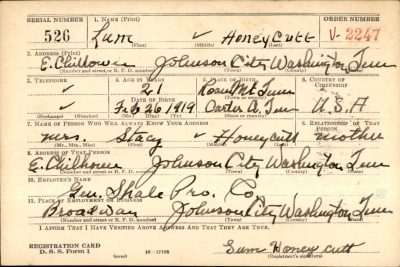 SERIAL NUMBER 1. NAME (Print) ORDER NUMBER
526 Lum ✓ Honeycutt V-2247
(First) (Middle) (Last)
2. ADDRESS (Print)
E. Chilhowee Johnson City Washington Tenn
(Number and street or R. F. D. number) (Town) (County) (State)
3. TELEPHONE 4. AGE IN YEARS 5. PLACE OF BIRTH 6. COUNTRY OF CITIZENSHIP
✓ 21 Roan Mt. Tenn
DATE OF BIRTH (Town or county)
✓ Feb 26 1919 Carter Co. Tenn U.S.A
(Exchange) (Number) (Mo.) (Day) (Yr.) (State or country)
7. NAME OF PERSON WHO WILL ALWAYS KNOW YOUR ADDRESS 8. RELATIONSHIP OF THAT PERSON
Mrs. ✓ Honeycutt mother
(Mr., Mrs., Miss) (First) (Middle) (Last)
9. ADDRESS OF THAT PERSON
E. Chilhowee Johnson City Washington Tenn
(Number and street or R. F. D. number) (Town) (County) (State)
10. EMPLOYER'S NAME
Gen. Shale Pro. Co
11. PLACE OF EMPLOYMENT OR BUSINESS
Broadway Johnson City Washington Tenn
(Number and street or R. F. D. number) (Town) (County) (State)
I AFFIRM THAT I HAVE VERIFIED ABOVE ANSWERS AND THAT THEY ARE TRUE.
REGISTRATION CARD
D. S. S. Form 1 16—17105 Lum Honeycutt
(Registrant's signature)